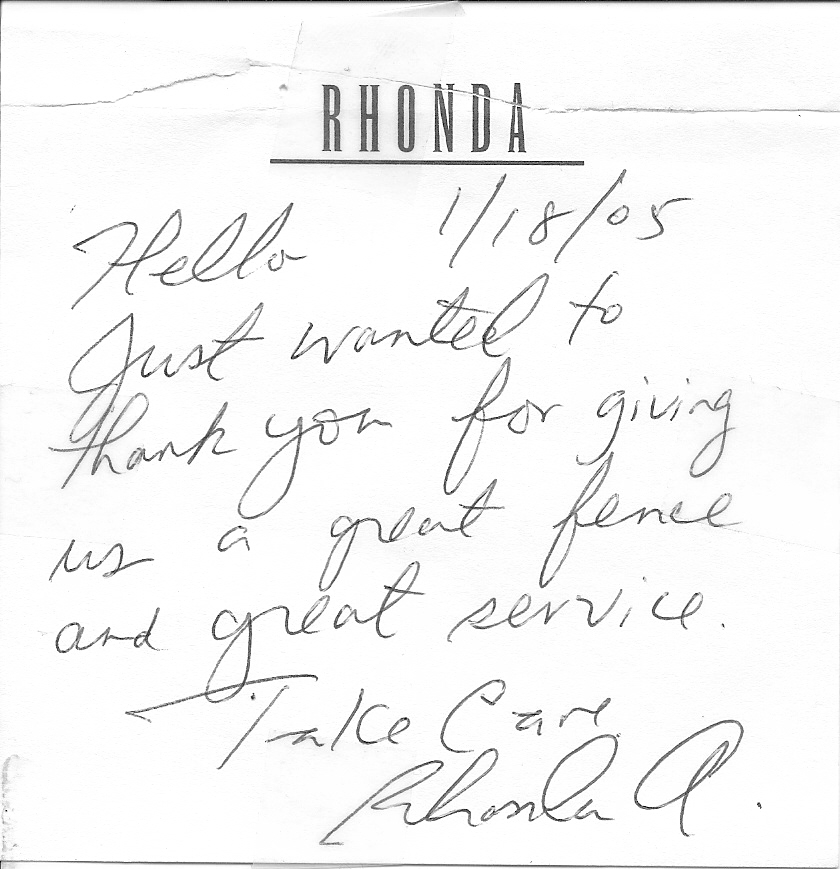 RHONDA
Hello 1/18/05
Just wanted to
thank you for giving
us a great fence
and great service.
Take Care
Rhonda A.